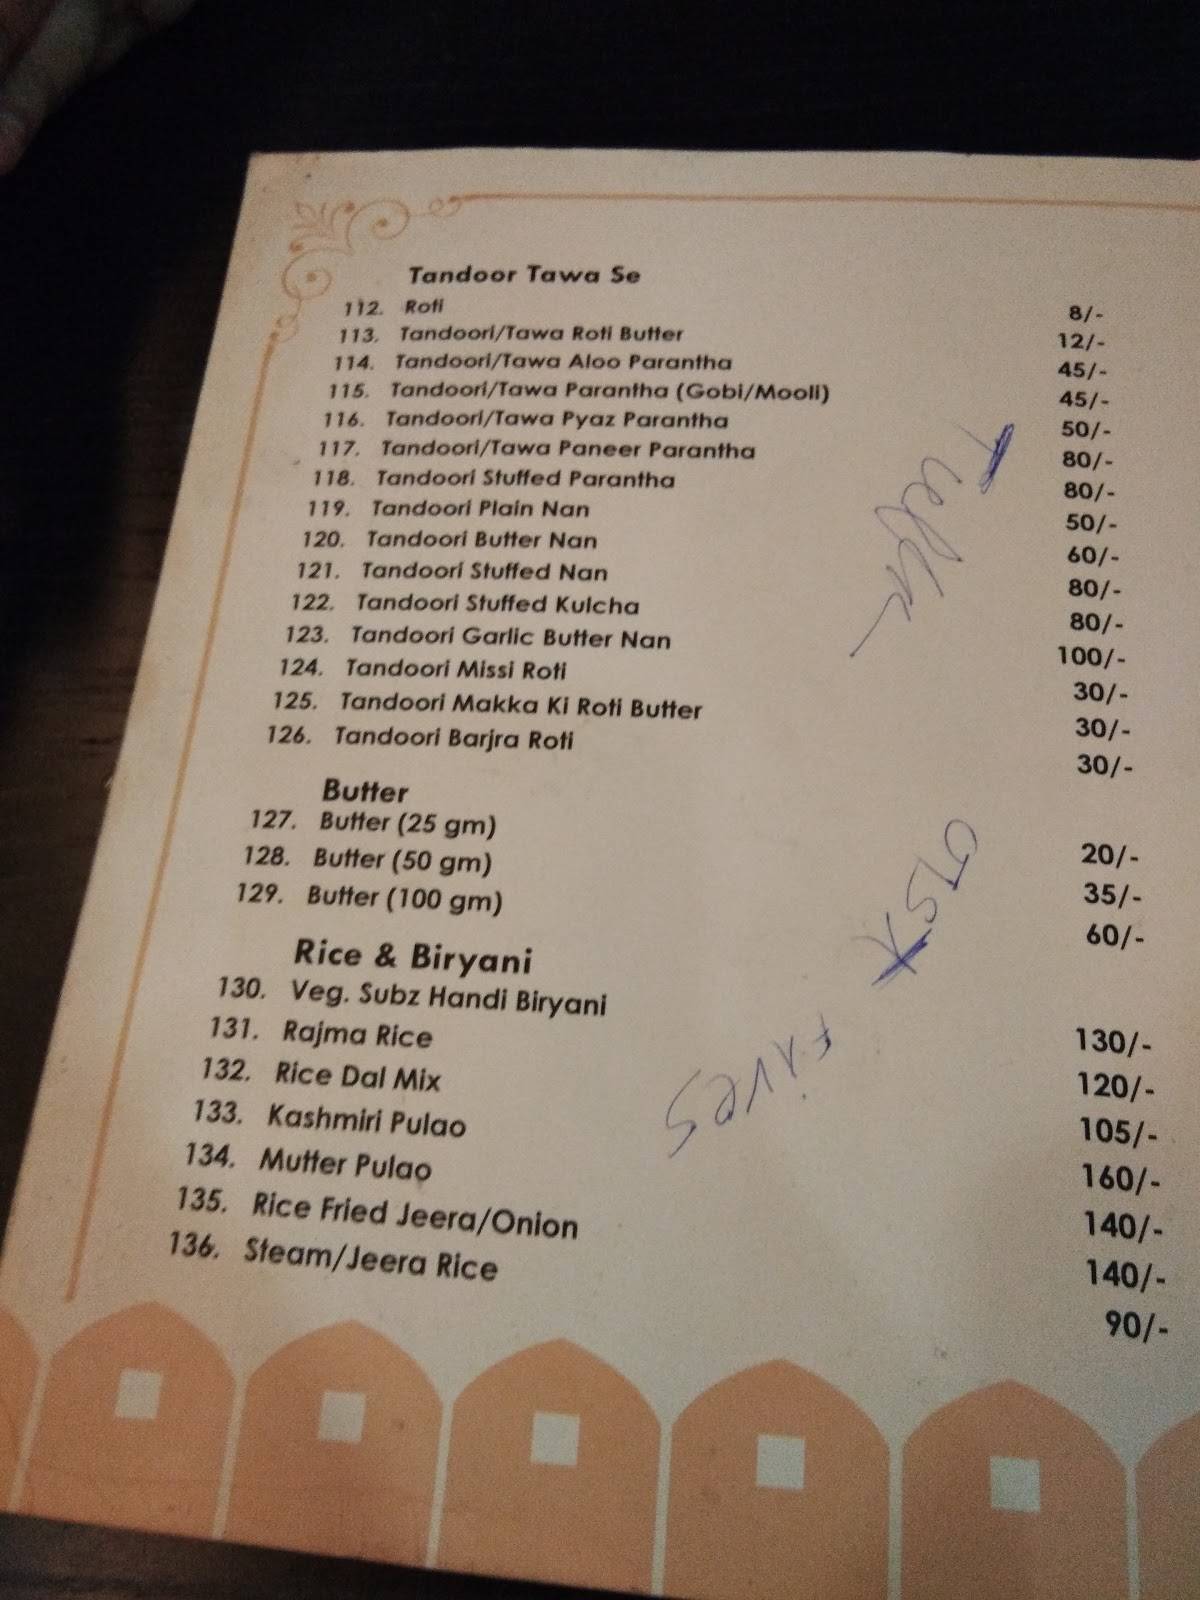 Tandoor Tawa Se
112. Roti 8/-
113. Tandoori/Tawa Roti Butter 12/-
114. Tandoori/Tawa Aloo Parantha 45/-
115. Tandoori/Tawa Parantha (Gobi/Mooli) 45/-
116. Tandoori/Tawa Pyaz Parantha 50/-
117. Tandoori/Tawa Paneer Parantha 80/-
118. Tandoori Stuffed Parantha 80/-
119. Tandoori Plain Nan 50/-
120. Tandoori Butter Nan 60/-
121. Tandoori Stuffed Nan 80/-
122. Tandoori Stuffed Kulcha 80/-
123. Tandoori Garlic Butter Nan 100/-
124. Tandoori Missi Roti 30/-
125. Tandoori Makka Ki Roti Butter 30/-
126. Tandoori Barjra Roti 30/-
Butter
127. Butter (25 gm) 20/-
128. Butter (50 gm) 35/-
129. Butter (100 gm) 60/-
Rice & Biryani
130. Veg. Subz Handi Biryani 130/-
131. Rajma Rice 120/-
132. Rice Dal Mix 105/-
133. Kashmiri Pulao 160/-
134. Mutter Pulao 140/-
135. Rice Fried Jeera/Onion 140/-
136. Steam/Jeera Rice 90/-